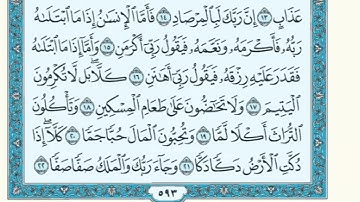 عَذَابٍ ١٣ إِنَّ رَبَّكَ لَبِالْمِرْصَادِ ١٤ فَأَمَّا الْإِنسَٰنُ إِذَا مَا ابْتَلَىٰهُ
رَبُّهُ فَأَكْرَمَهُ وَنَعَّمَهُ فَيَقُولُ رَبِّي أَكْرَمَنِ ١٥ وَأَمَّا إِذَا مَا ابْتَلَىٰهُ
فَقَدَرَ عَلَيْهِ رِزْقَهُ فَيَقُولُ رَبِّي أَهَٰنَنِ ١٦ كَلَّا بَل لَّا تُكْرِمُونَ
الْيَتِيمَ ١٧ وَلَا تَحَٰضُّونَ عَلَىٰ طَعَامِ الْمِسْكِينِ ١٨ وَتَأْكُلُونَ
التُّرَاثَ أَكْلًا لَّمًّا ١٩ وَتُحِبُّونَ الْمَالَ حُبًّا جَمًّا ٢٠ كَلَّا إِذَا
دُكَّتِ الْأَرْضُ دَكًّا دَكًّا ٢١ وَجَاءَ رَبُّكَ وَالْمَلَكُ صَفًّا صَفًّا ٢٢
٥٩٣